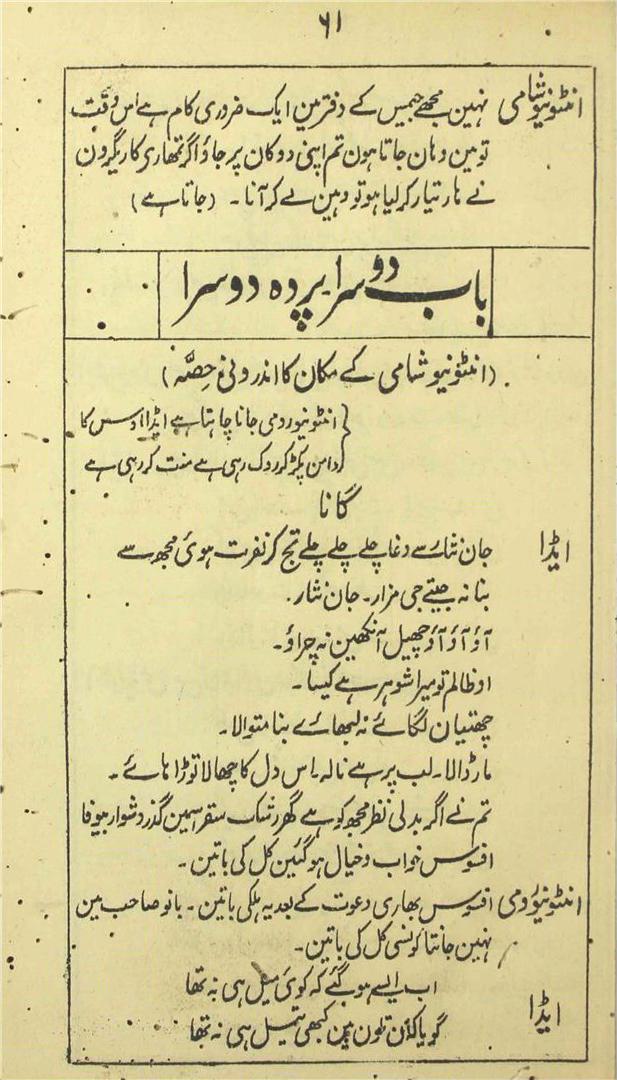 ۶۱
انٹونیو شامی نہین مجھے جمیس کے دفترمین ایک ضروری کام ہے اس وقت
تو مین وہان جاتا ہون تم اپنی دوکان پر جاؤ اگر تمھاری کاریگرون
نے ہار تیار کر لیا ہو تو وہین لے کر آنا ۔ (جاتا ہے)
باب دوسرا پردہ دوسرا
(انٹونیو شامی کے مکان کا اندرونی حصّہ)
انٹونیو رومی جانا چاہتا ہے ایڈا اوس کا
دامن پکڑ کر روک رہی ہے منت کر رہی ہے
گانا
ایڈا جان نثار سے دغا چلے چلے چلے تج کر نفرت ہوئ مجھ سے
بنا نہ جیتے جی مزار ۔ جان نثار ۔
آؤ آؤ آؤ چھیل آنکھین نہ چراؤ ۔
او ظالم تو میرا شوہر ہے کیسا ۔
چھتیان لگائے نہ لبھائے بنا متوالا ۔
مار ڈالا ۔ لب پر ہے نالہ ۔ اس دل کا چھالا توڑا ہائے ۔
تم نے اگر بدلی نظر مجھ کو ہے گھر رشک سقر اسمین گذر دشوار بیوفا
افسوس خواب و خیال ہو گئین کل کی باتین ۔
انٹونیو رومی افسوس بھاری دعوت کے بعد یہ ہلکی باتین ۔ بانو صاحب مین
نہین جانتا کونسی کل کی باتین ۔
ایڈا اب ایسے ہو گئے کہ کوئ میل ہی نہ تھا
گویا کہ ان تلون مین کبھی تیل ہی نہ تھا